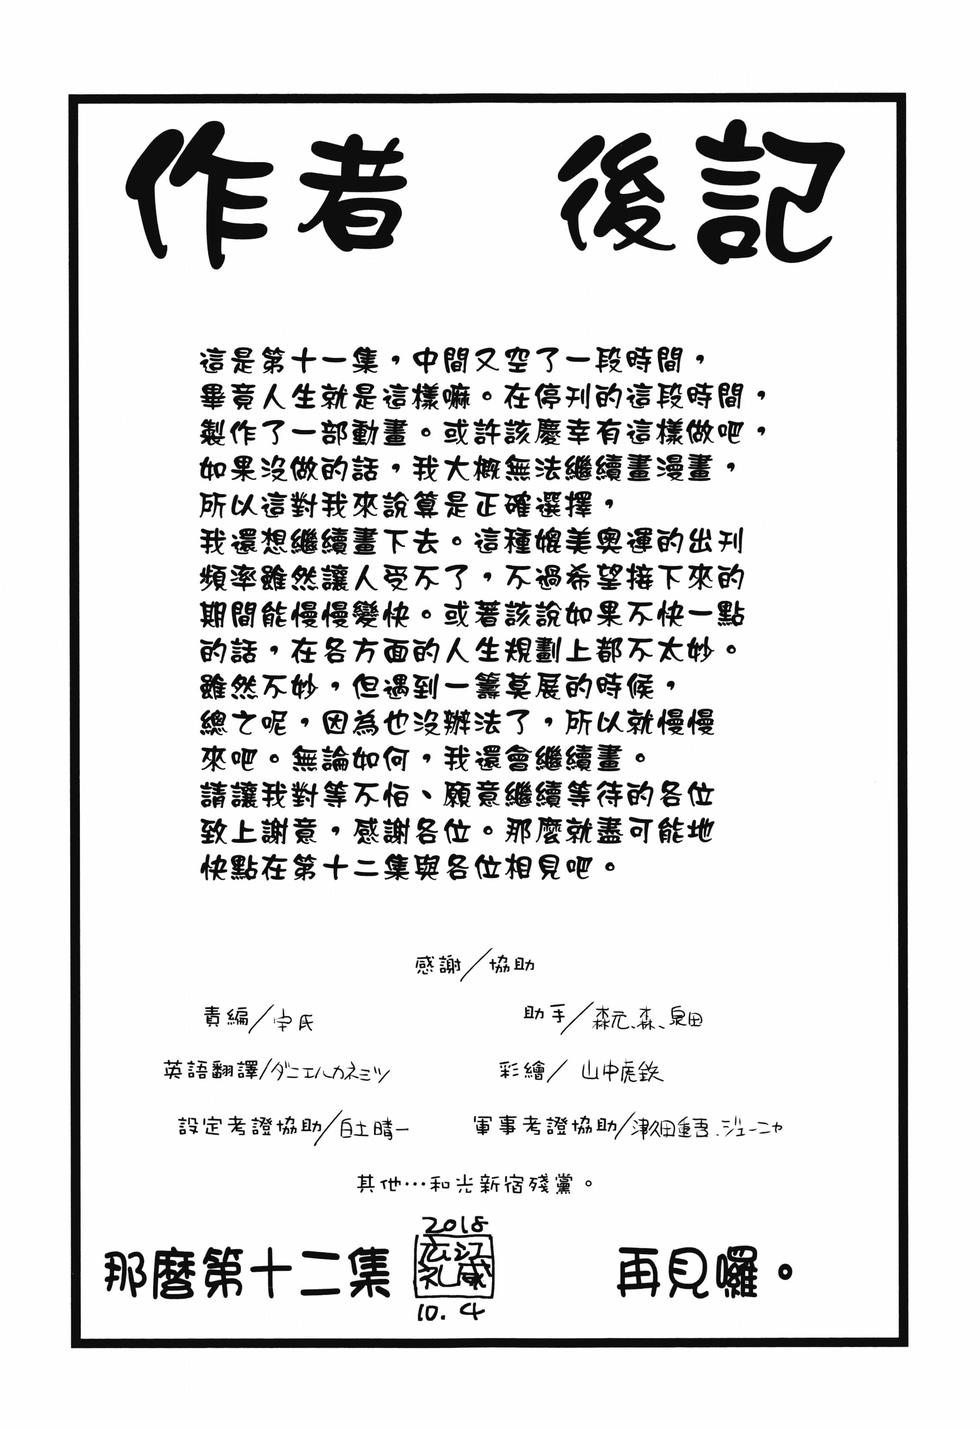 作者 後記
這是第十一集，中間又空了一段時間，
畢竟人生就是這樣嘛。在停刊的這段時間，
製作了一部動畫。或許該慶幸有這樣做吧，
如果沒做的話，我大概無法繼續畫漫畫，
所以這對我來說算是正確選擇，
我還想繼續畫下去。這種媲美奧運的出刊
頻率雖然讓人受不了，不過希望接下來的
期間能慢慢變快。或著該說如果不快一點
的話，在各方面的人生規劃上都不太妙。
雖然不妙，但遇到一籌莫展的時候，
總之呢，因為也沒辦法了，所以就慢慢
來吧。無論如何，我還會繼續畫。
請讓我對等不恒、願意繼續等待的各位
致上謝意，感謝各位。那麼就盡可能地
快點在第十二集與各位相見吧。
感謝／協助
責編／宇氏 助手／森元、森、泉田
英語翻譯／ダニエルカネミツ 彩繪／山中虎鉄
設定考證協助／白土晴一 軍事考證協助／津久田重吾、ジューニャ
其他…和光新宿殘黨。
2018
広江礼威
10.4
那麼第十二集 再見囉。